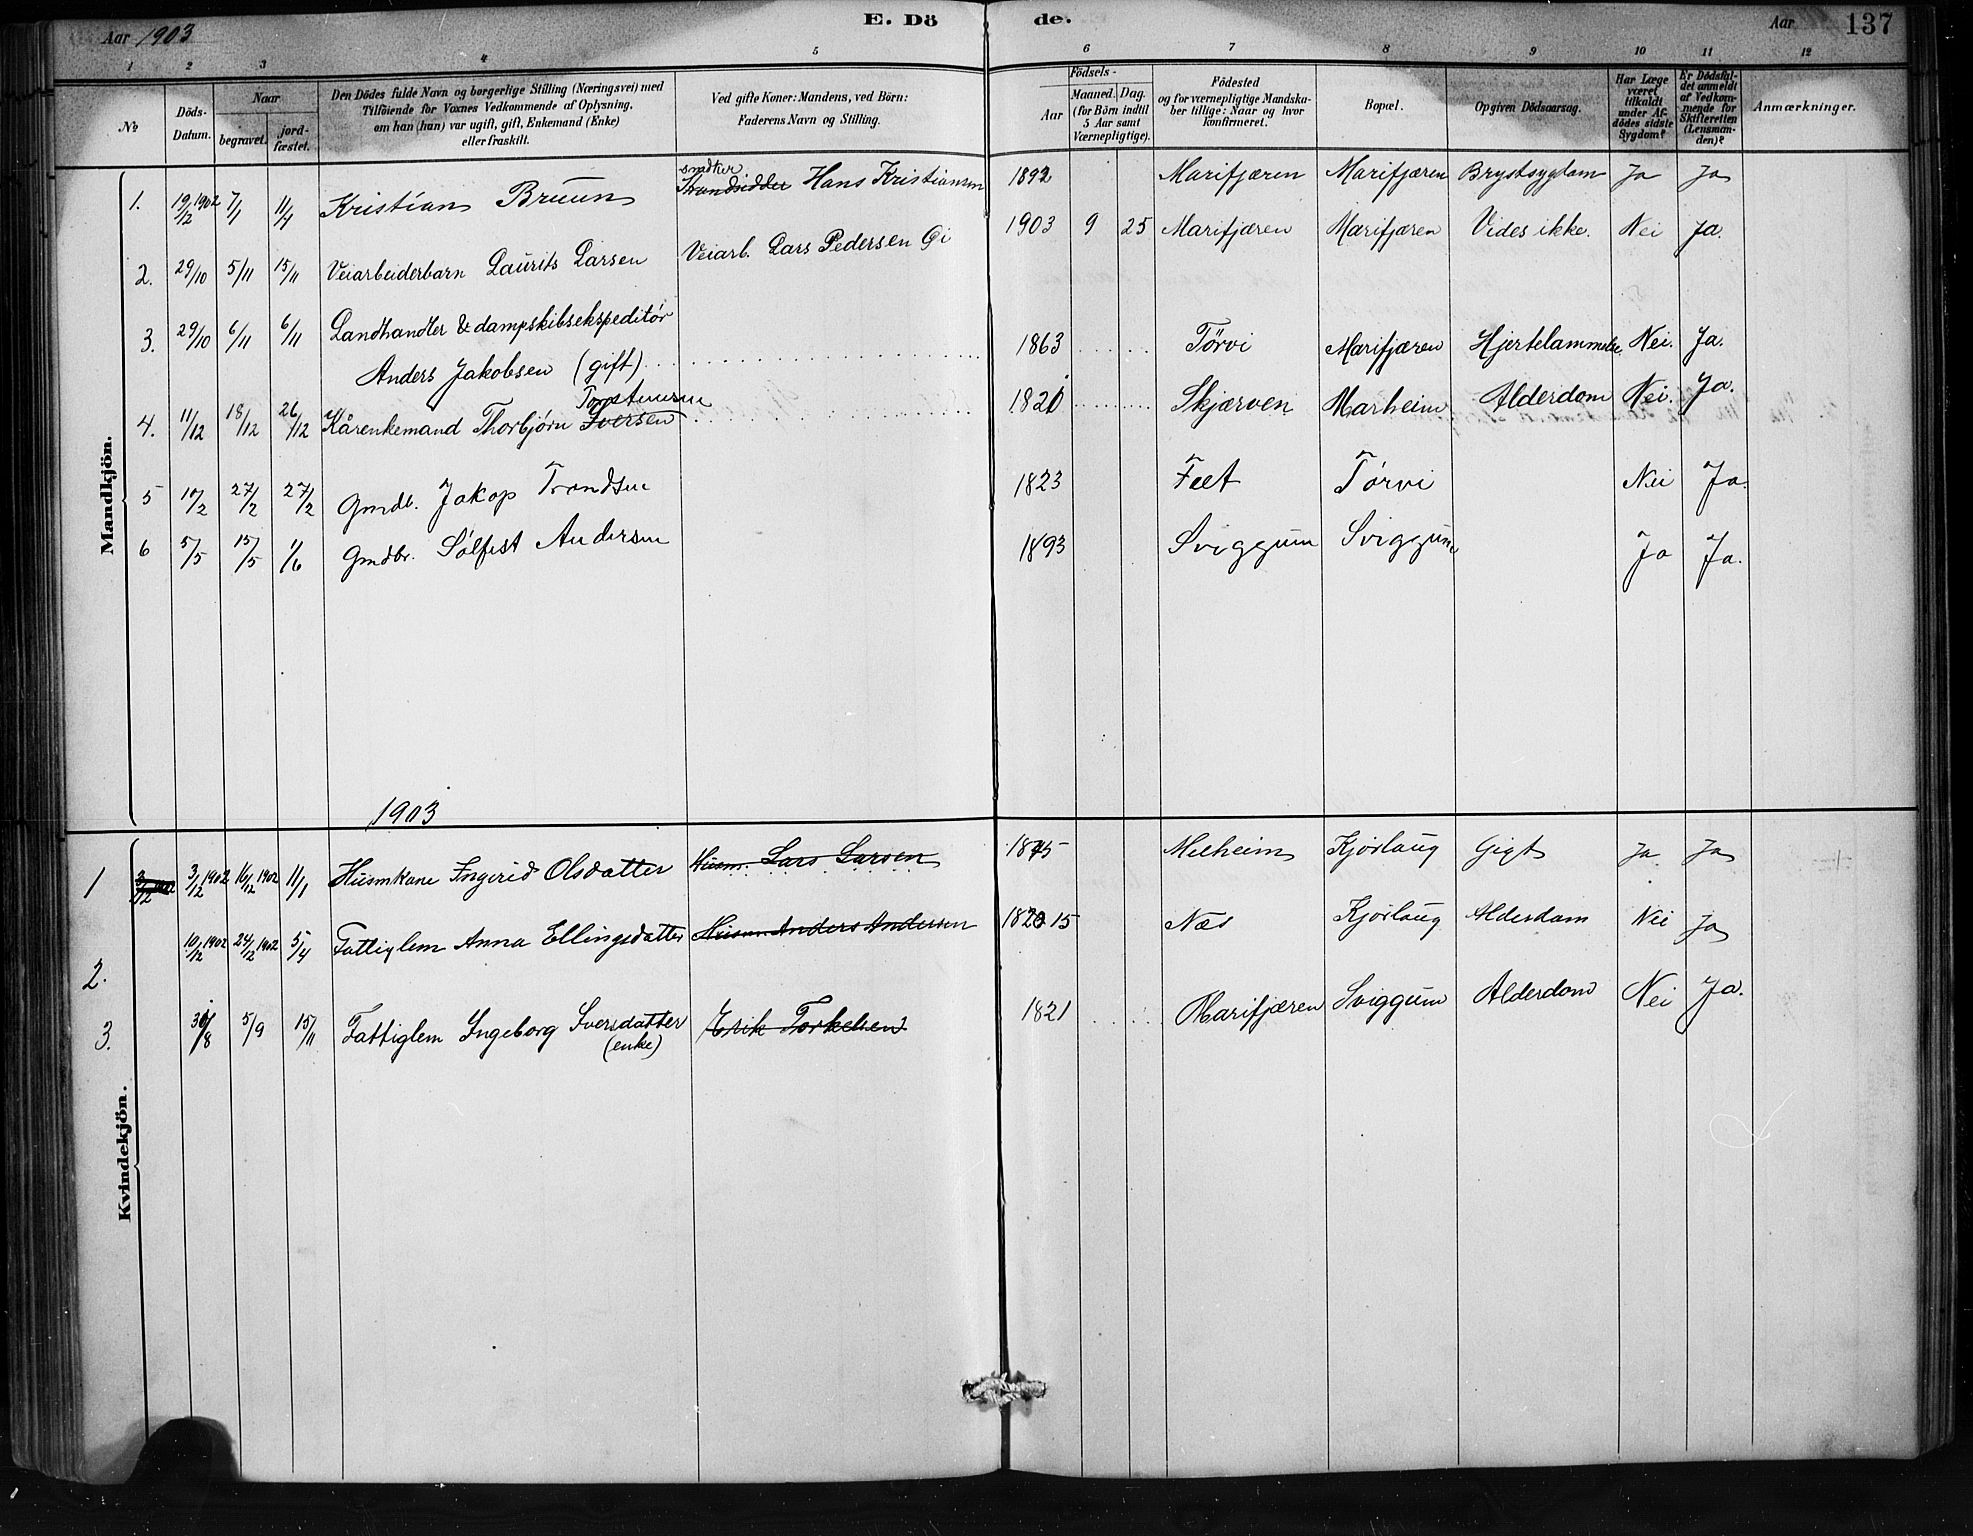 Aar 1903 E. Dö de. Aar 137
1 2 3 4 5 6 7 8 9 10 11 12
No Döds-Datum. Naar begravet. jordfæstet. Den Dödes fulde Navn og borgerlige Stilling (Næringsvei) med Tilföiende for Voxnes Vedkommende af Oplysning, om han (hun) var ugift, gift, Enkemand (Enke) eller fraskilt. Ved gifte Koner: Mandens, ved Börn: Faderens Navn og Stilling. Födsels- Aar Maaned. Dag. (for Börn indtil 5 Aar samt Værnepligtige). Födested og for værnepligtige Mandskaber tillige: Naar og hvor konfirmeret. Bopæl. Opgiven Dödsaarsag. Har Læge været tilkaldt under Afdödes sidste Sygdom? Er Dödsfaldet anmeldt af Vedkommende for Skifteretten (Lensmanden)? Anmærkninger.
Mandkjön.
smdker
1. 19/12 1902 7/1 11/4 Kristian Bruun Strandsidder Hans Kristiansen 1892 Marifjæren Marifjæren Brystsygdom Ja Ja
2. 29/10 5/11 15/11 Veiarbeiderbarn Laurits Larsen Veiarb. Lars Pedersen Gi 1903 9 25 Marifjæren Marifjæren Vides ikke. Nei Ja.
3. 29/10 6/11 6/11 Landhandler & dampskibsekspeditør
Anders Jakobsen (gift) 1863 Törvi Marifjæren Hjertelammelse. Nei. Ja.
Torstensen
4. 11/12 18/12 26/12 Kårenkemand Thorbjørn Iversen 1821 Skjærven Marheim Alderdom Nei. Ja.
5 10/2 27/2 27/2 Gmdb. Jakop Trondsen 1823 Feet Törvi Nei Ja.
6 5/5 15/5 1/6 Gmdbr. Sølfest Andersen 1893 Sviggum Sviggum Ja Ja.
1903
Kvindekjön.
1 3/12 1902 3/12 1902 16/12 1902 11/1 Husmkone Ingerid Olsdatter Husm. Lars Larsen 1845 Melheim Kjørlaug Gigt Ja Ja
2. 10/12 1902 24/12 1902 5/4 Fattiglem Anna Ellingsdatter Husm Anders Andersen 1820 15 Næs Kjørlaug Alderdom Nei Ja
3. 30/8 5/9 15/11 Fattiglem Ingeborg Iversdatter Erik Torkelsen 1821 Marifjæren Sviggum Alderdom Nei Ja.
(enke)